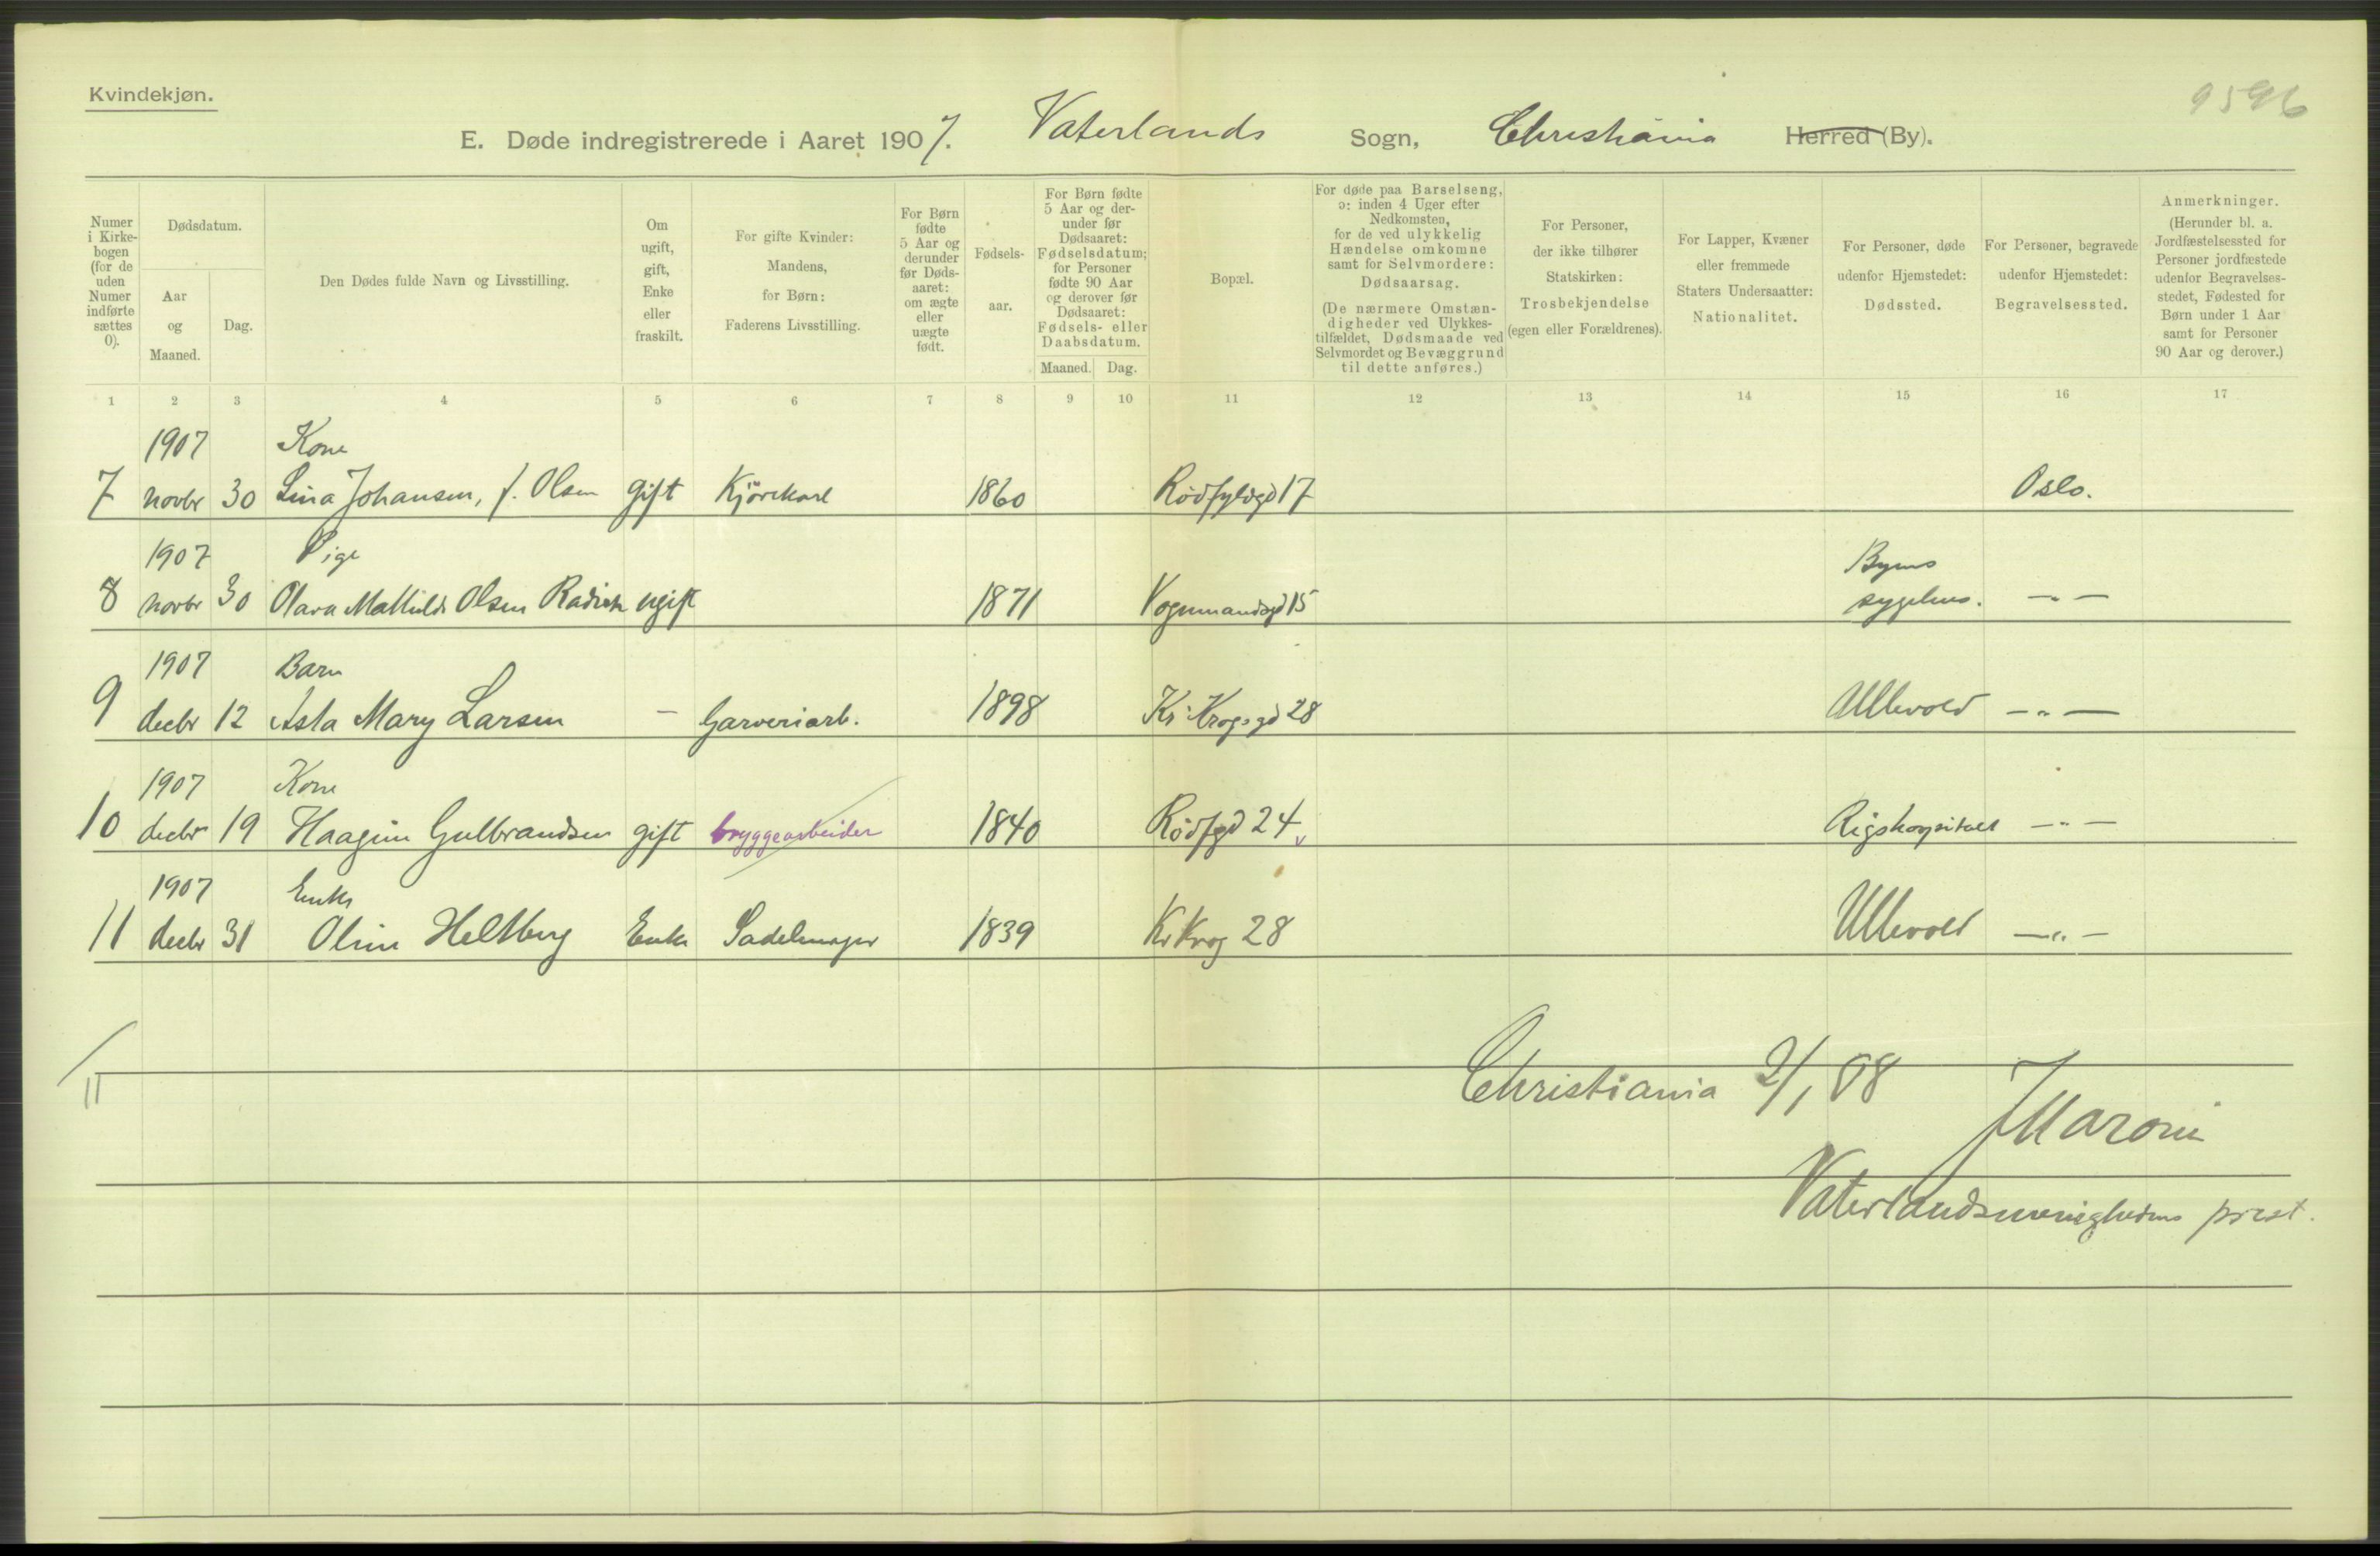 Kvindekjøn.
9596
E. Døde indregistrerede i Aaret 1907. Vaterlands Sogn, Christiania Herred (By).
Numer i Kirkebogen (for de uden Numer indførte sættes 0).
Dødsdatum.
Aar og Maaned.
Dag.
Den Dødes fulde Navn og Livsstilling.
Om ugift, gift, Enke eller fraskilt.
For gifte Kvinder: Mandens, for Børn: Faderens Livsstilling.
For Børn fødte 5 Aar og derunder før Dødsaaret: om ægte eller uægte født.
Fødselsaar.
For Børn fødte 5 Aar og derunder før Dødsaaret: Fødselsdatum; for Personer fødte 90 Aar og derover før Dødsaaret: Fødsels- eller Daabsdatum.
Maaned. Dag.
Bopæl.
For døde paa Barselseng, ɔ: inden 4 Uger efter Nedkomsten, for de ved ulykkelig Hændelse omkomne samt for Selvmordere: Dødsaarsag.
(De nærmere Omstændigheder ved Ulykkestilfældet, Dødsmaade ved Selvmordet og Bevæggrund til dette anføres.)
For Personer, der ikke tilhører Statskirken: Trosbekjendelse (egen eller Forældrenes).
For Lapper, Kvæner eller fremmede Staters Undersaatter: Nationalitet.
For Personer, døde udenfor Hjemstedet: Dødssted.
For Personer, begravede udenfor Hjemstedet: Begravelsessted.
Anmerkninger. (Herunder bl. a. Jordfæstelsessted for Personer jordfæstede udenfor Begravelsesstedet, Fødested for Børn under 1 Aar samt for Personer 90 Aar og derover.)
1 2 3 4 5 6 7 8 9 10 11 12 13 14 15 16 17
1907 Kone
7 novbr 30 Lina Johansen, f. Olsen gift Kjørekarl 1860 Rødfyldgd 17 Oslo.
1907 Pige Byens
8 novbr 30 Olava Mathilde Olsen ugift 1871 Vognmandsgd 15 sygehus. —"—
1907 Barn
9 decbr 12 Asta Mary Larsen — Garveriarb. 1898 Kr Krogsgd 28 Ullevold —"—
1907 Kone
10 decbr 19 Gulbrandsen gift bryggearbeider 1840 Rødfgd 24 Rigshospitalet —"—
1907 Enke
11 decbr 31 Heltberg Enke Sadelmager 1839 Kr Krog 28 Ullevold —"—
11
Christiania 2/1 08
Maroni
Vaterlandsmenigheds prest.